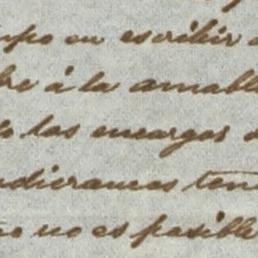 mpo en escribir a
bre á la amabl
lo las encargos d
udieramos ten
no no es posible